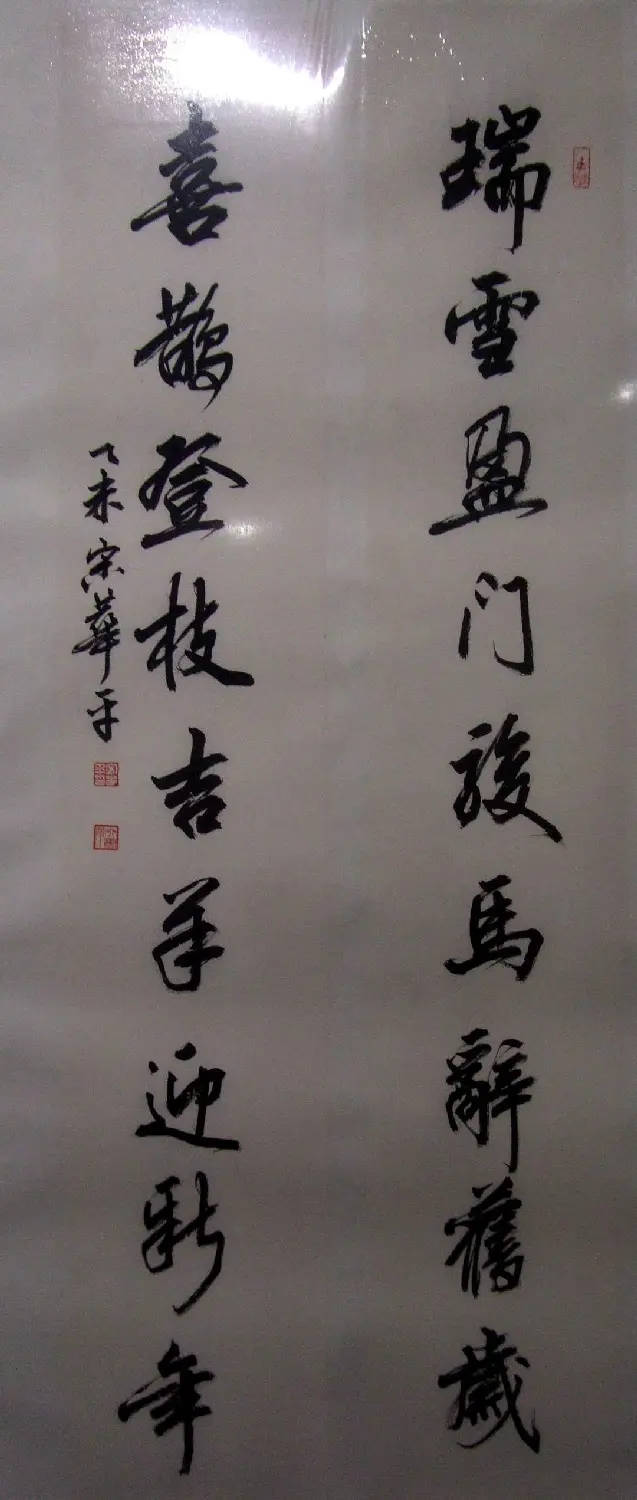 瑞雪盈门骏馬辭舊歲
喜鵲登枝吉羊迎新年
乙未宗華平